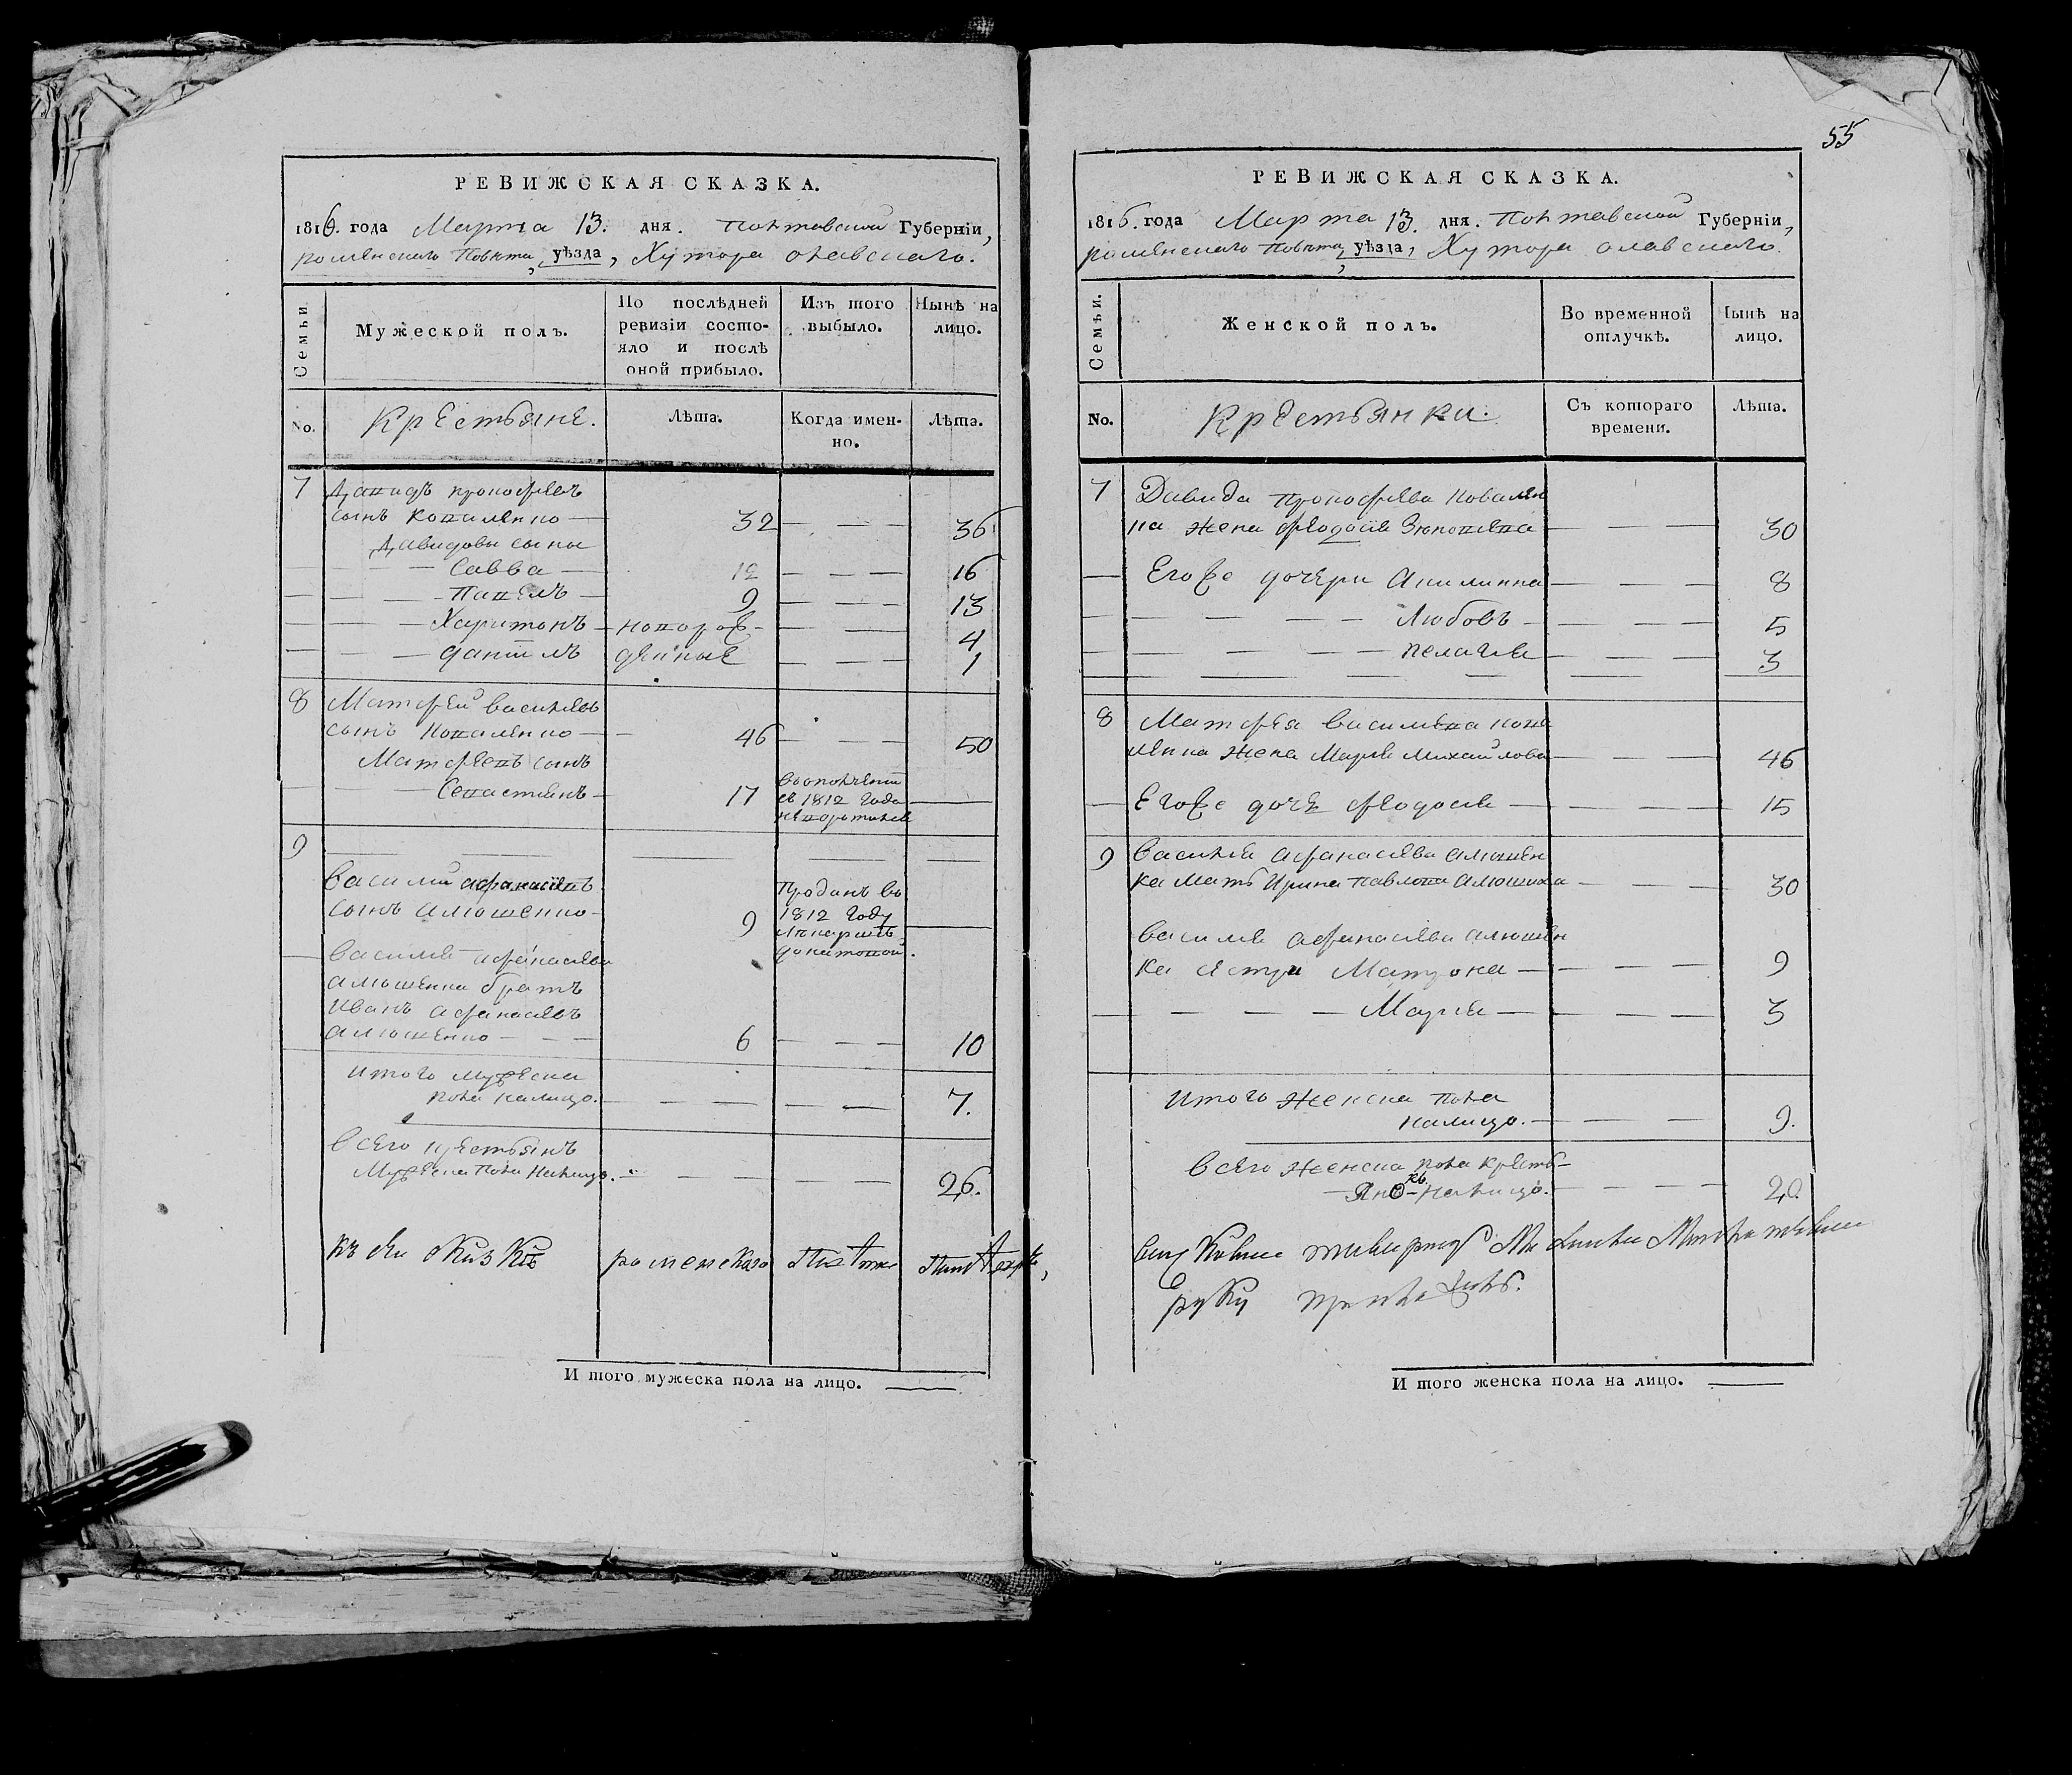 РЕВИЖСКАЯ СКАЗКА.
1816. года Марта 13. дня. Полтавской Губерніи,
роменского Повѣта, уѣзда, Хутора олавского.
Семьи
Мужеской полъ.
По послѣдней ревизіи состояло и послѣ оной прибыло.
Изъ того выбыло.
Нынѣ на лицо.
No.
Крестьяне.
Лѣта.
Когда именно.
Лѣта.
7 Давидъ прокофьевъ
сынъ Коваленко 32 — — — 36
Давидовы сыны
Савва 12 — — — 16
Павелъ 9 — — — 13
Харитонъ новорож- — — — 4
данїилъ денные — — — 1
8 Матфей васильевъ
сынъ Коваленко 46 — — — 50
Матфеевъ сынъ
Севастиянъ 17
въ ополченїи
съ 1812 года
невозратился
9
василий афанасиевъ
сынъ алюшенко 9
Проданъ въ
1812 году
василия афанасиева
алюшенка братъ
Иванъ афанасиевъ
алюшенко 6 — — — 10
итого мужеска
пола налицо. 7.
всего крестьянъ
Мужеска пола налицо. 26.
роменского
И того мужеска пола на лицо.
55
РЕВИЖСКАЯ СКАЗКА.
1816. года Марта 13. дня. Полтавской Губерніи,
роменского Повѣта, уѣзда, Хутора олавского.
Семьи.
Женской полъ.
Во временной отлучкѣ.
Нынѣ на лицо.
No.
Крестьянки.
Съ котораго времени.
Лѣта.
7 Давида Прокофьева Ковален
ка жена феодосия — — — 30
Егоже дочери Акилинна — — — 8
Любовь — — — 5
пелагия — — — 3
8 Матфея василиева кова
ленка жена Мария Михайлова — — — 46
Егоже дочь феодосия — — — 15
9 василия афанасиева алюшен
ка мать Ирина павлова — — — 30
василия афанасиева алюшен
ка сестри Матрона — — — 9
Мария — — — 3
итого женска пола
налицо. 9.
всего женска пола кресть-
янокъ налицо. 20.
руку
И того женска пола на лицо.